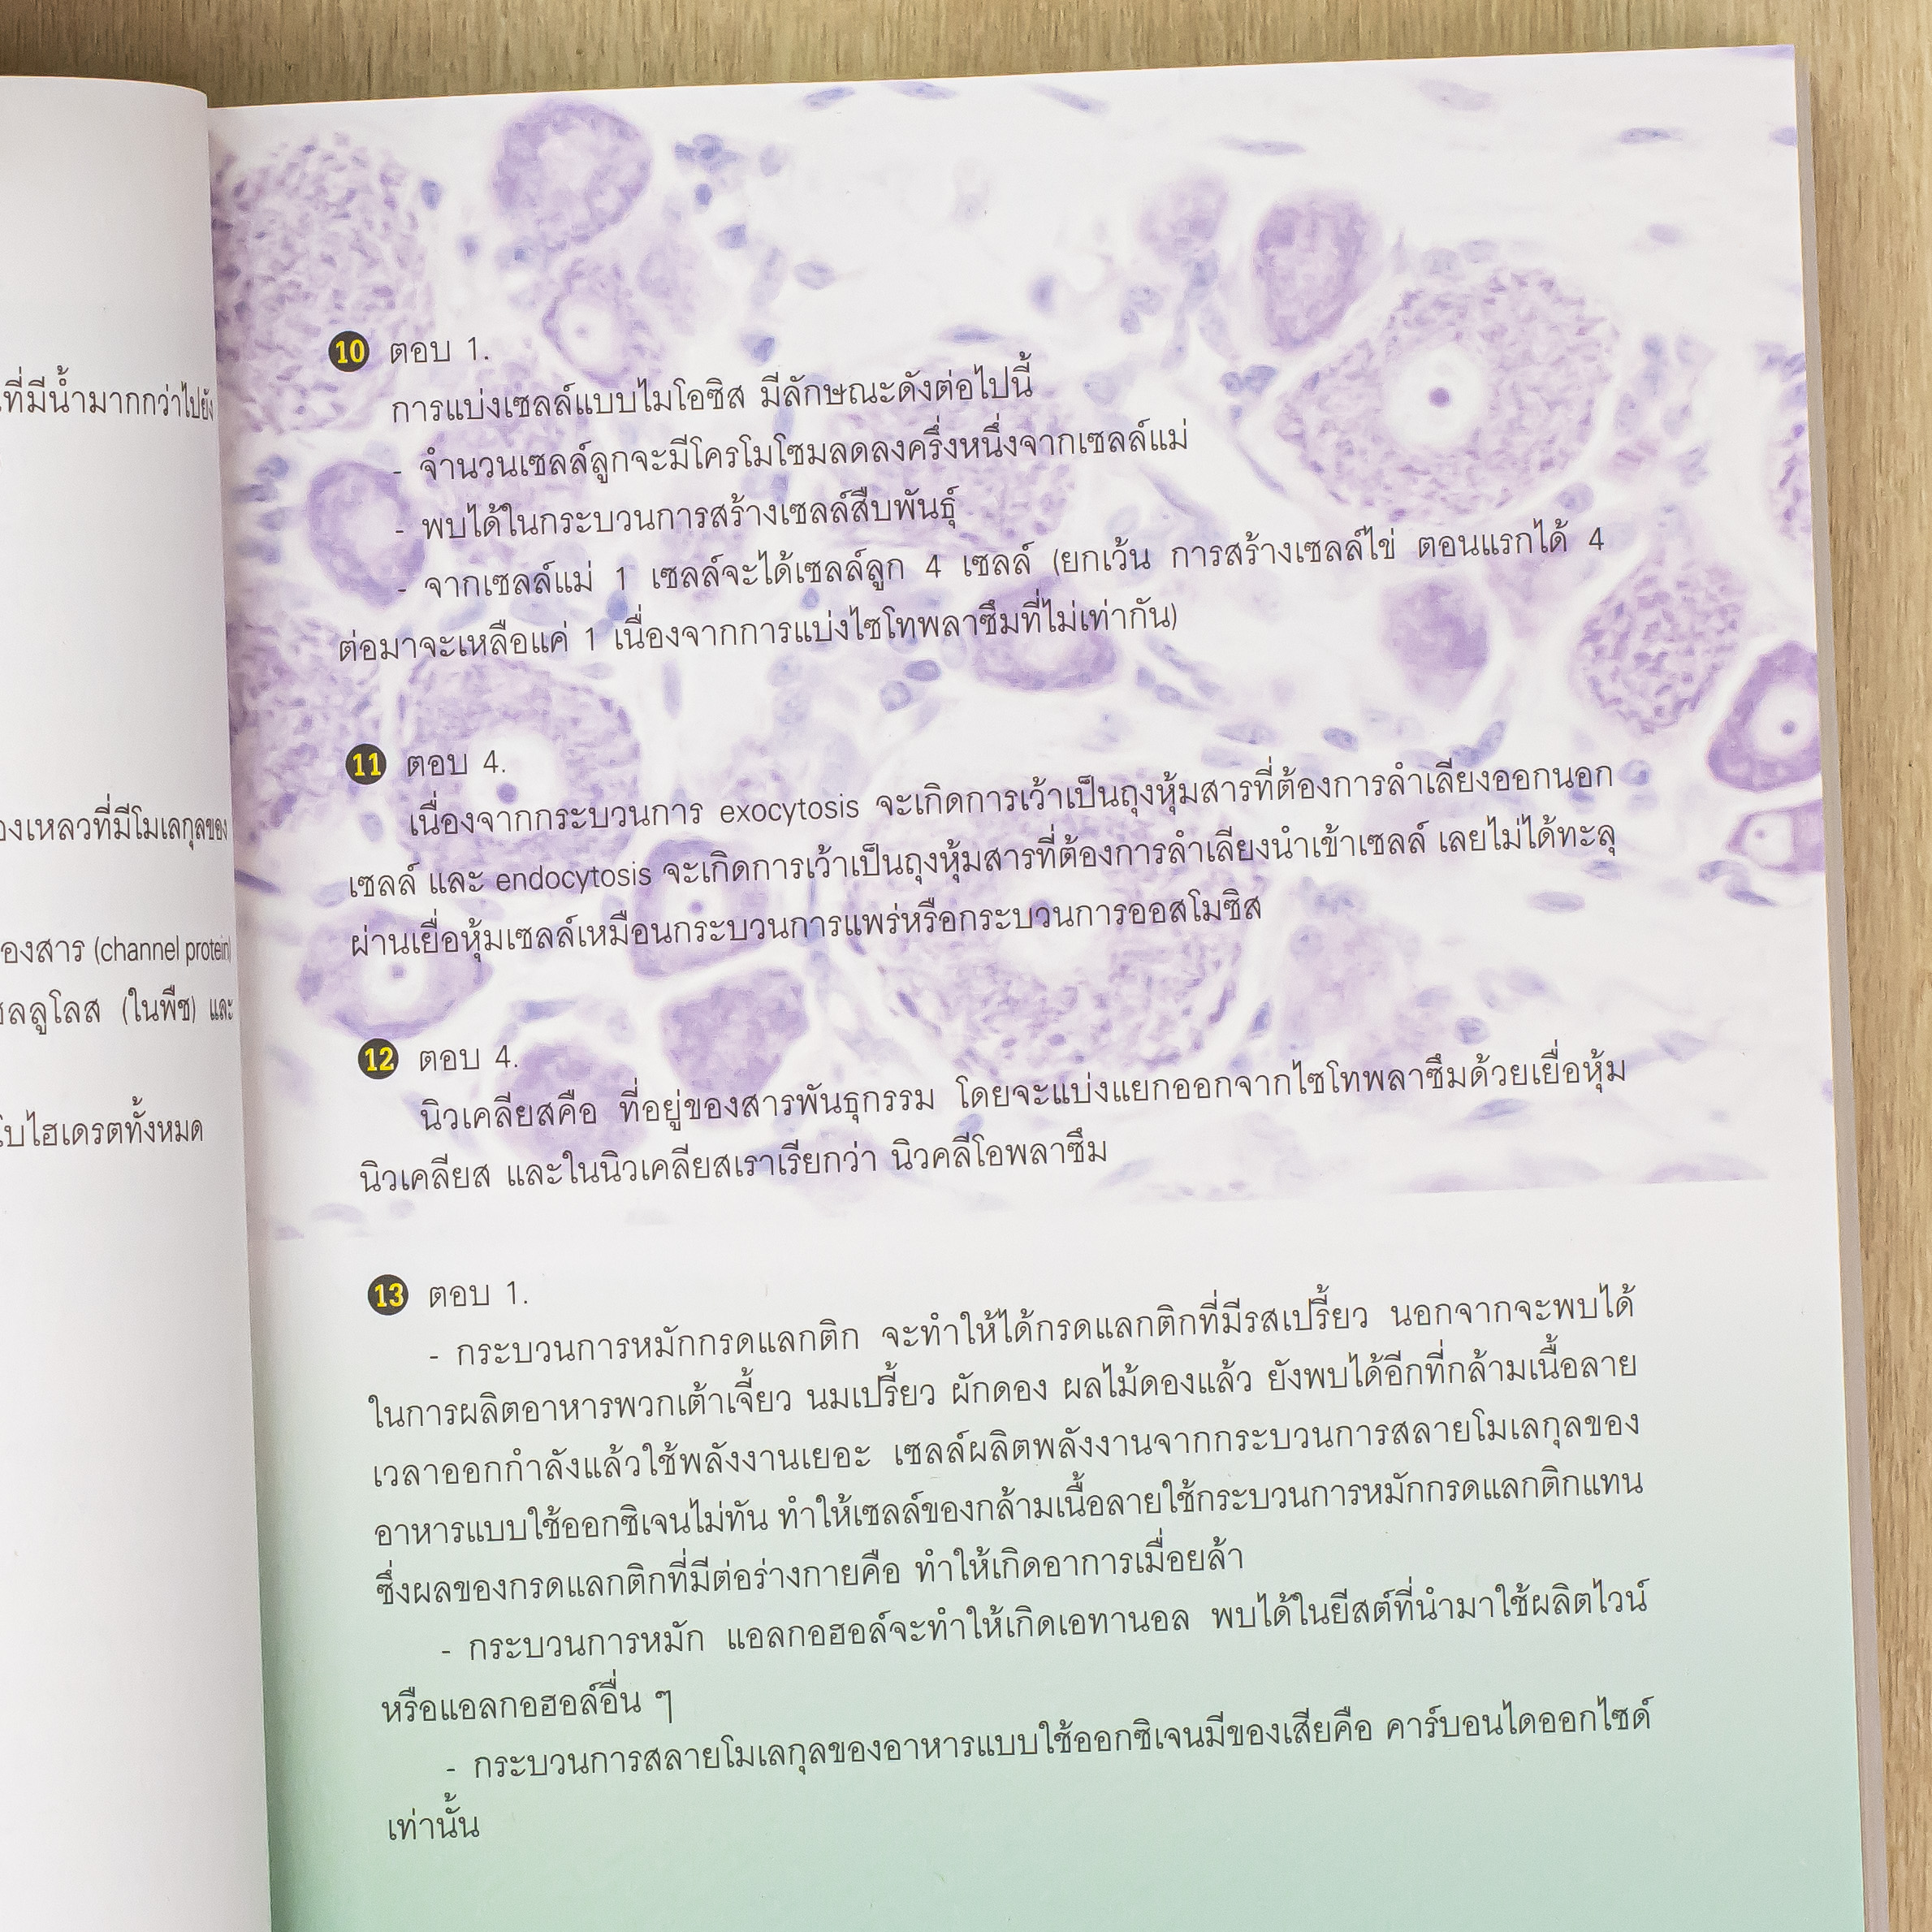 ที่มีน้ำมากกว่าไปยัง
องเหลวที่มีโมเลกุลของ
องสาร (channel protein)
ซลลูโลส (ในพืช) และ
โบไฮเดรตทั้งหมด
10 ตอบ 1.
การแบ่งเซลล์แบบไมโอซิส มีลักษณะดังต่อไปนี้
- จำนวนเซลล์ลูกจะมีโครโมโซมลดลงครึ่งหนึ่งจากเซลล์แม่
- พบได้ในกระบวนการสร้างเซลล์สืบพันธุ์
- จากเซลล์แม่ 1 เซลล์จะได้เซลล์ลูก 4 เซลล์ (ยกเว้น การสร้างเซลล์ไข่ ตอนแรกได้ 4
ต่อมาจะเหลือแค่ 1 เนื่องจากการแบ่งไซโทพลาซึมที่ไม่เท่ากัน)
11 ตอบ 4.
เนื่องจากกระบวนการ exocytosis จะเกิดการเว้าเป็นถุงหุ้มสารที่ต้องการลำเลียงออกนอก
เซลล์ และ endocytosis จะเกิดการเว้าเป็นถุงหุ้มสารที่ต้องการลำเลียงนำเข้าเซลล์ เลยไม่ได้ทะลุ
ผ่านเยื่อหุ้มเซลล์เหมือนกระบวนการแพร่หรือกระบวนการออสโมซิส
12 ตอบ 4.
นิวเคลียสคือ ที่อยู่ของสารพันธุกรรม โดยจะแบ่งแยกออกจากไซโทพลาซึมด้วยเยื่อหุ้ม
นิวเคลียส และในนิวเคลียสเราเรียกว่า นิวคลีโอพลาซึม
13 ตอบ 1.
- กระบวนการหมักกรดแลกติก จะทำให้ได้กรดแลกติกที่มีรสเปรี้ยว นอกจากจะพบได้
ในการผลิตอาหารพวกเต้าเจี้ยว นมเปรี้ยว ผักดอง ผลไม้ดองแล้ว ยังพบได้อีกที่กล้ามเนื้อลาย
เวลาออกกำลังแล้วใช้พลังงานเยอะ เซลล์ผลิตพลังงานจากกระบวนการสลายโมเลกุลของ
อาหารแบบใช้ออกซิเจนไม่ทัน ทำให้เซลล์ของกล้ามเนื้อลายใช้กระบวนการหมักกรดแลกติกแทน
ซึ่งผลของกรดแลกติกที่มีต่อร่างกายคือ ทำให้เกิดอาการเมื่อยล้า
- กระบวนการหมัก แอลกอฮอล์จะทำให้เกิดเอทานอล พบได้ในยีสต์ที่นำมาใช้ผลิตไวน์
หรือแอลกอฮอล์อื่น ๆ
- กระบวนการสลายโมเลกุลของอาหารแบบใช้ออกซิเจนมีของเสียคือ คาร์บอนไดออกไซด์
เท่านั้น